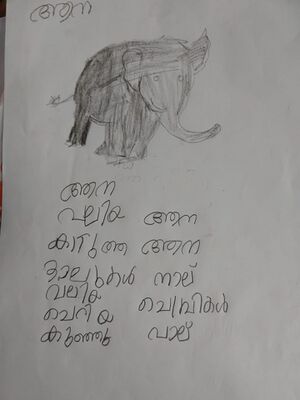 ആന
ആന
വലിയ ആന
കറുത്ത ആന
കാലുകൾ നാല്
വലിയ
ചെറിയ ചെവികൾ
കുഞ്ഞു വാല്